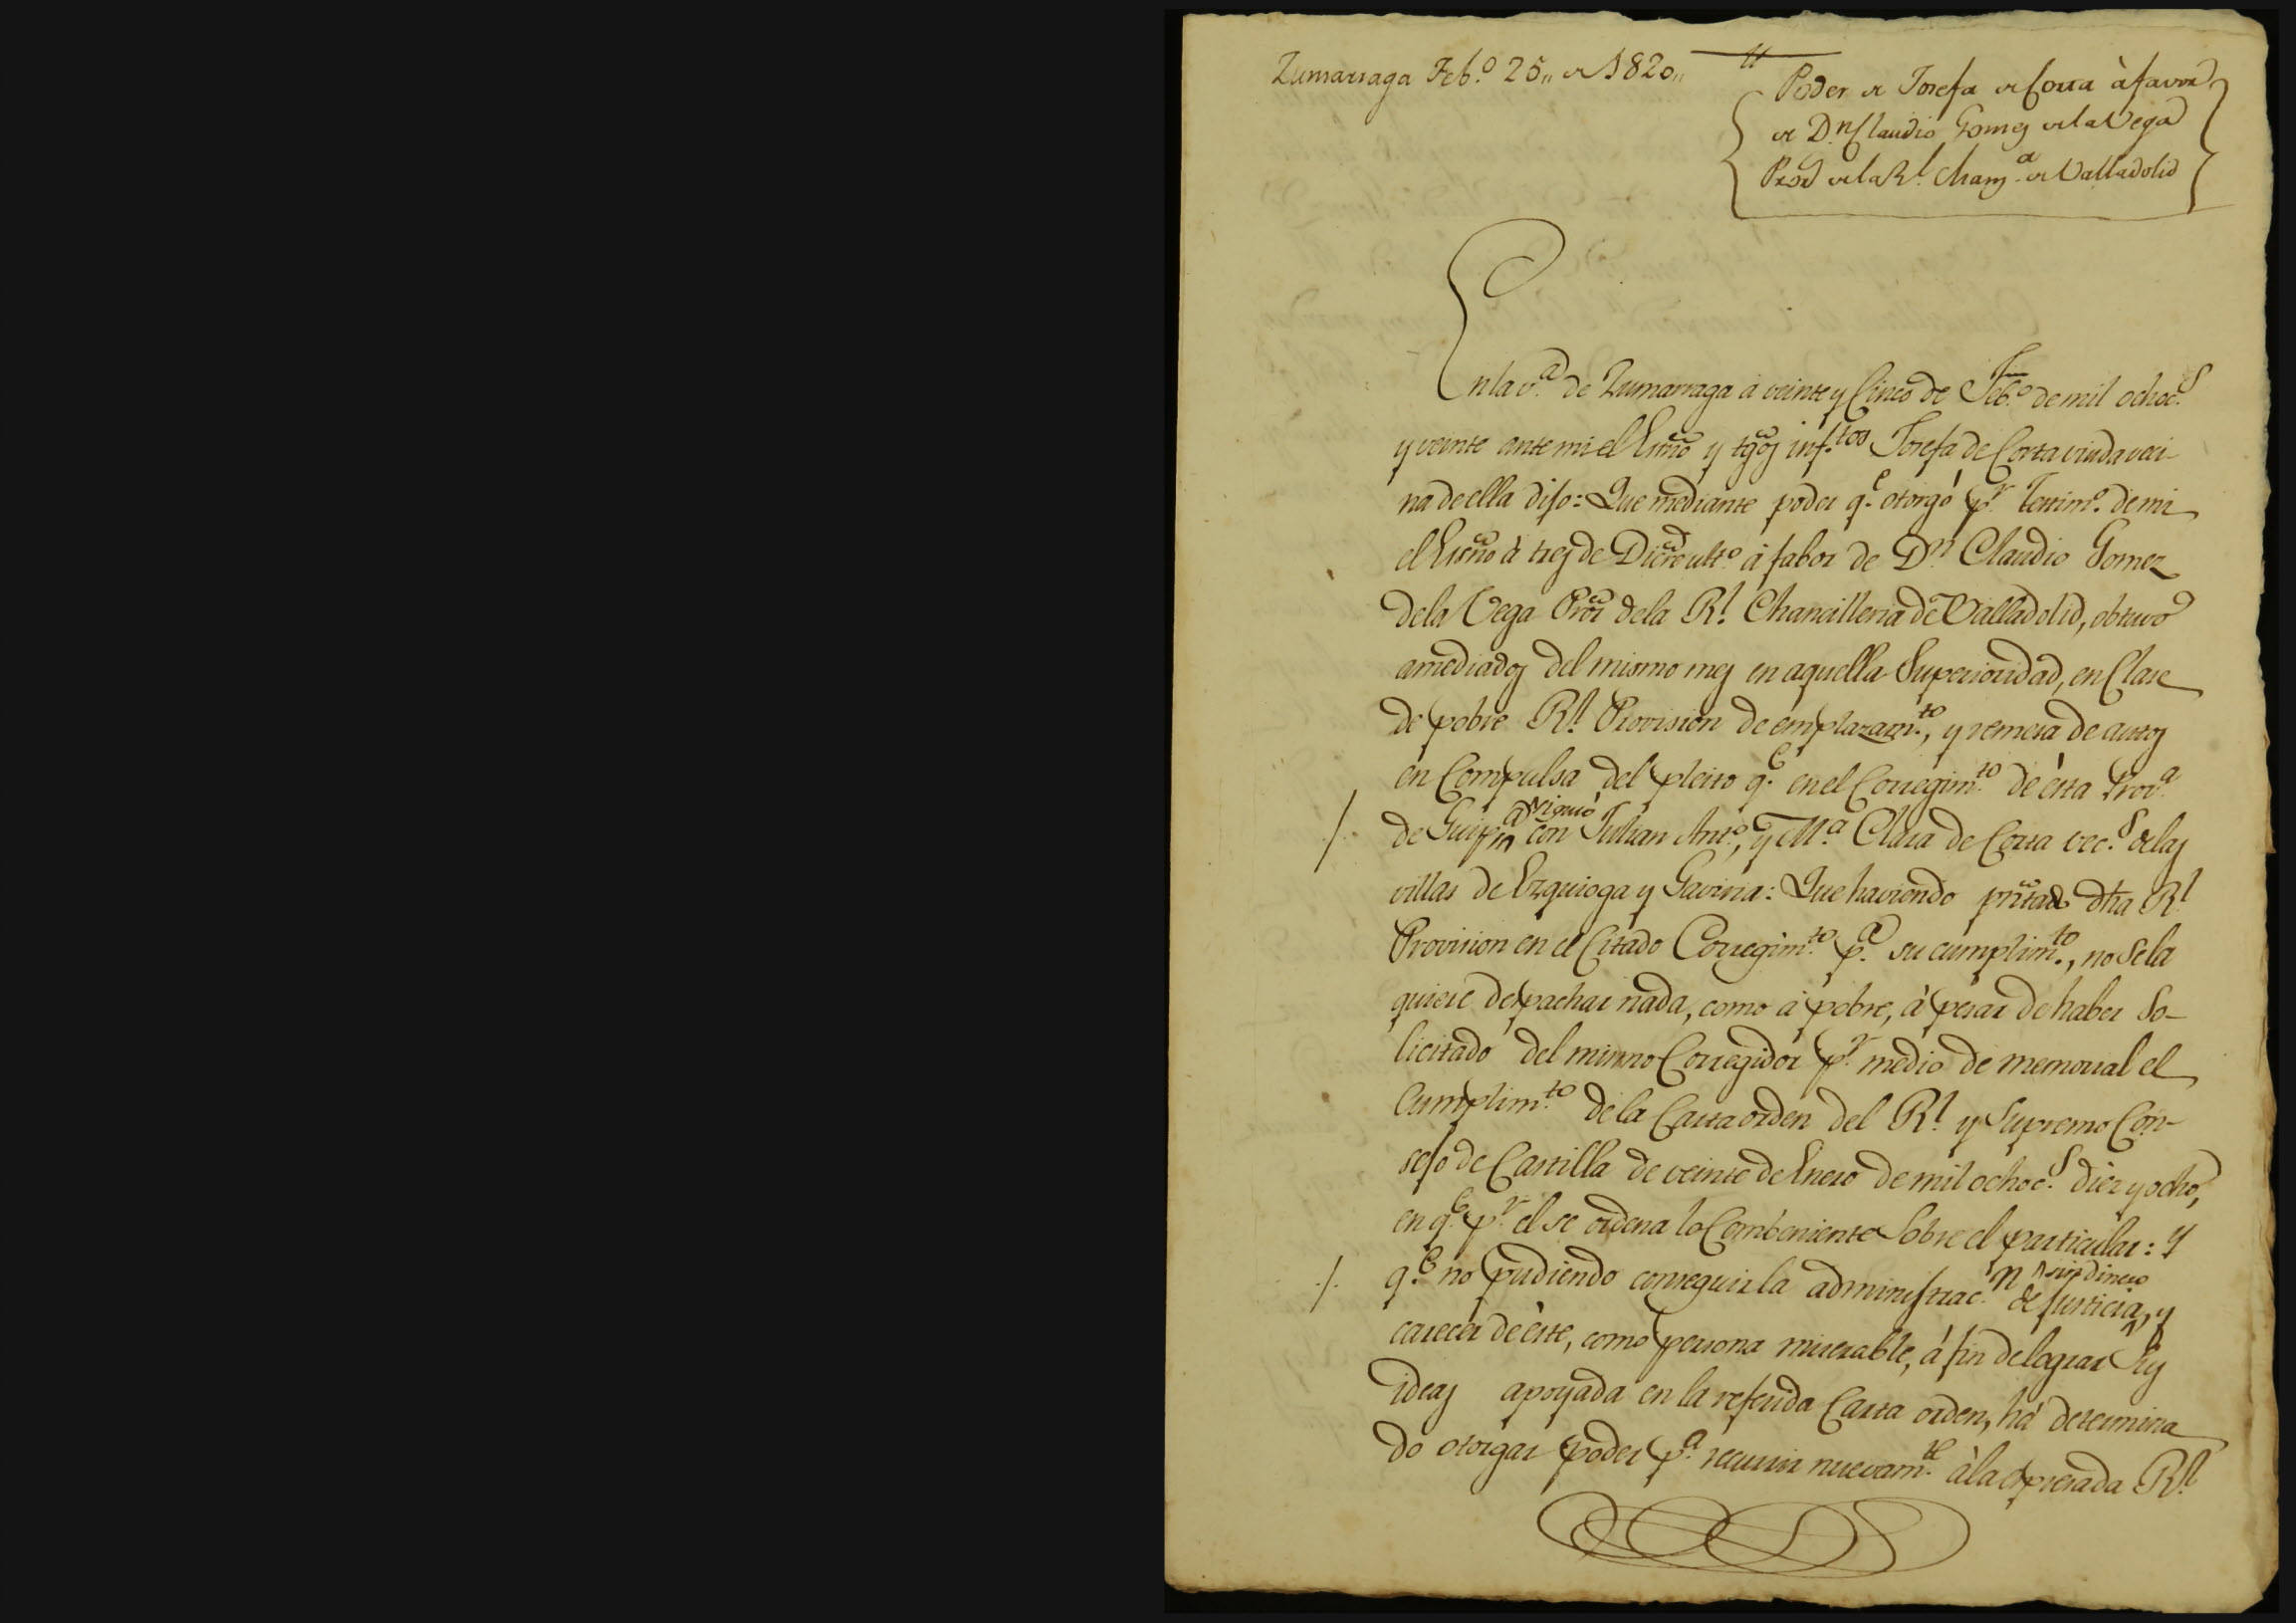 Zumarraga Feb.º 25,, de 1820,,
11
Poder de Josefa de Corta à favor
de D.n Claudio Gomez de la Vega
Pror de la Rl. Chanz.a de Valladolid
En la v.a de Zumarraga à veinte y Cinco de Feb.º de mil ochoc.s
y veinte ante mi el Esño y tgõs inf.tos Josefa de Corta viuda veci-
na de ella dijo: Que mediante poder q.e otorgó p.r Testim.º de mi
el Esño à tres de Dicre ult.º à fabor de D.n Claudio Gomez
de la Vega Pror de la Rl. Chancilleria de Valladolid, obtuvo
a mediados del mismo mes en aquella Superioridad, en Clase
de pobre Rl. Provision de emplazam.to, y remesa de autos
en Compulsa del pleito q.e en el Corregim.to de ésta Prov.a
/. de Guip.a siguió con Julian Ant.º, y M.a Clara de Corta vec.s de las
villas de Ezquioga y Gaviria: Que haviendo prñtado dha Rl
Provision en el Citado Corregim.to p.a su cumplim.to, no se la
quiere despachar nada, como à pobre, à pesar de haber So-
licitado del mismo Corregidor p.r medio de memorial el
Cumplim.to de la Carta orden del Rl. y Supremo Con-
sejo de Castilla de veinte de Enero de mil ochoc.s diez y ocho,
en q.e p.r el se ordena lo Combeniente Sobre el particular: y
./. q.e no pudiendo conseguir la administrac.n de justicia sin dinero, y
carecer de éste, como persona miserable, á fin de lograr Sus
ideas apoyada en la referida Carta orden, há determina
do otorgar poder p.a recurrir nuevam.te à la expresada Rl.